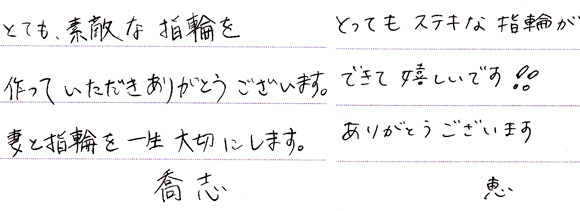 とても、素敵な指輪を
作っていただきありがとうございます。
妻と指輪を一生大切にします。
喬志
とってもステキな指輪が
できて嬉しいです!!
ありがとうございます
恵